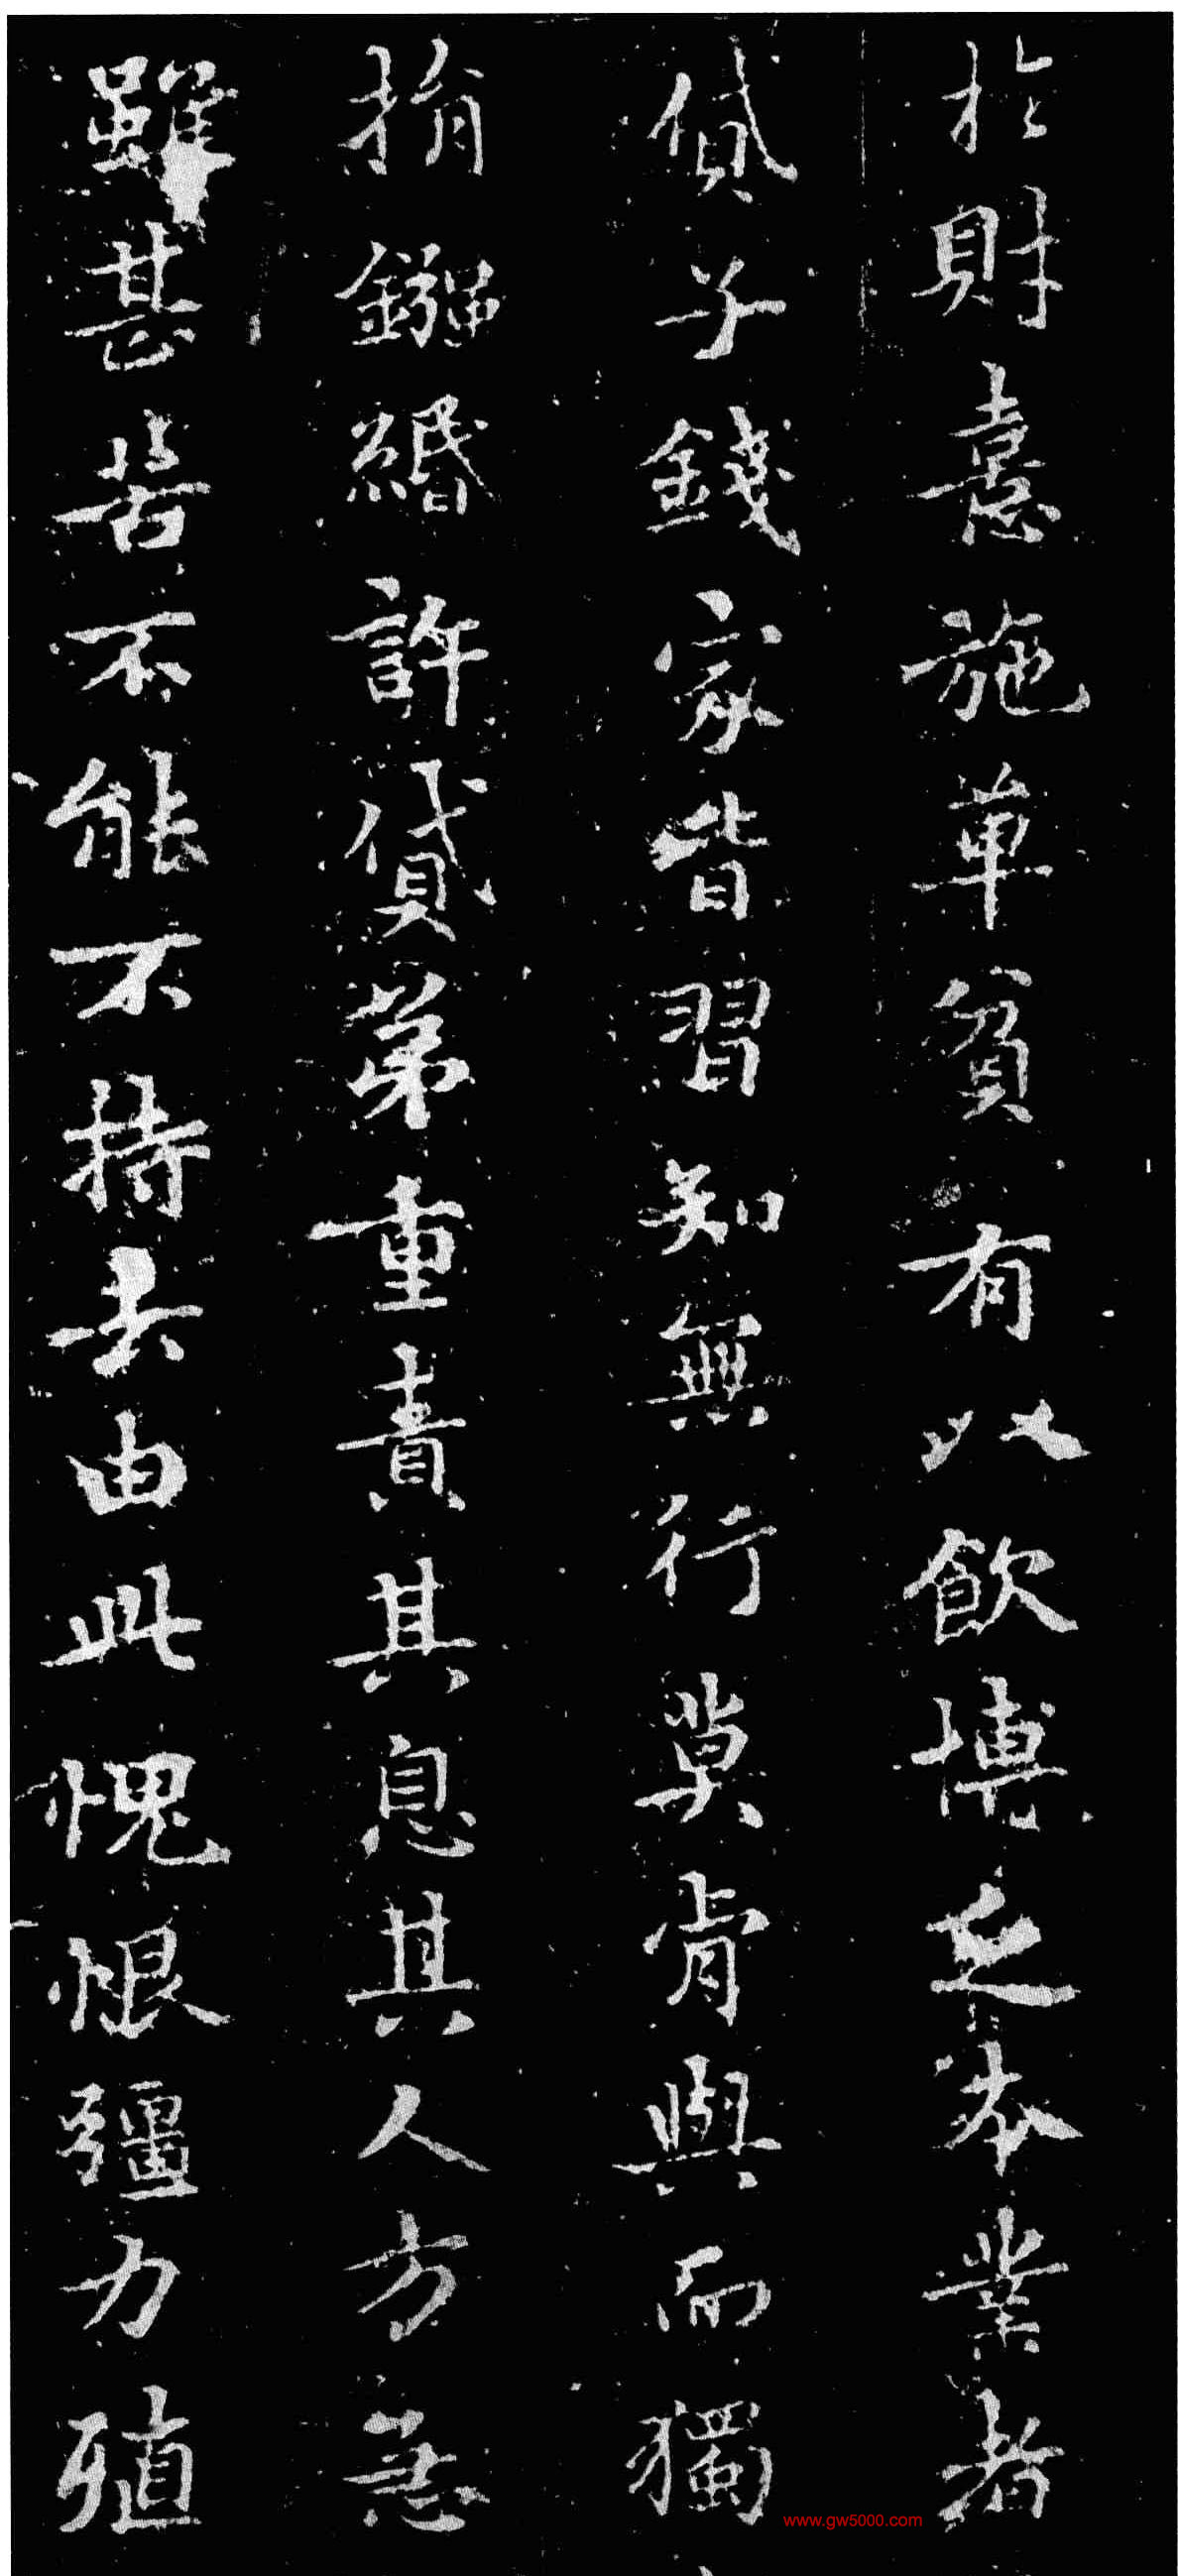 於財憙施單貧有以飲博乏本業者
貸子錢家皆習知無行莫肯與而獨
捐鏹緡許貸苐重責其息其人方急
雖甚苦不能不持去由此愧恨彊力殖
www.gw5000.com